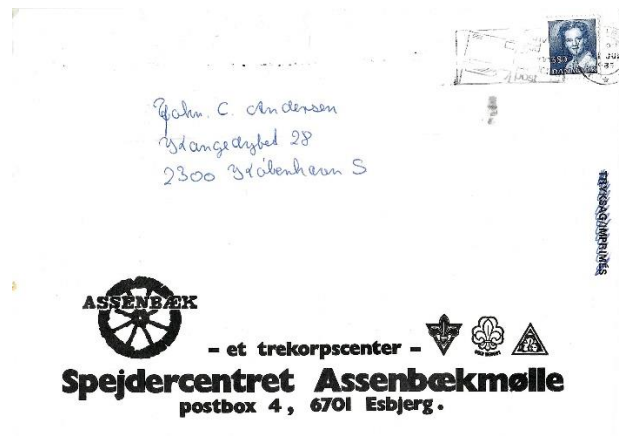 DANMARK
John. C. Andersen
Klangedybet 28
2300 København S
TRYKSAG/IMPRIMÉS
ASSENBÆK
- et trekorpscenter -
Spejdercentret Assenbækmølle
postbox 4, 6701 Esbjerg.